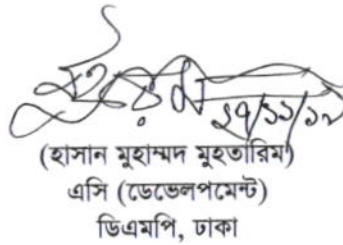 ১৭/১১/১৯
(হাসান মুহাম্মদ মুহতারিম)
এসি (ডেভেলপমেন্ট)
ডিএমপি, ঢাকা